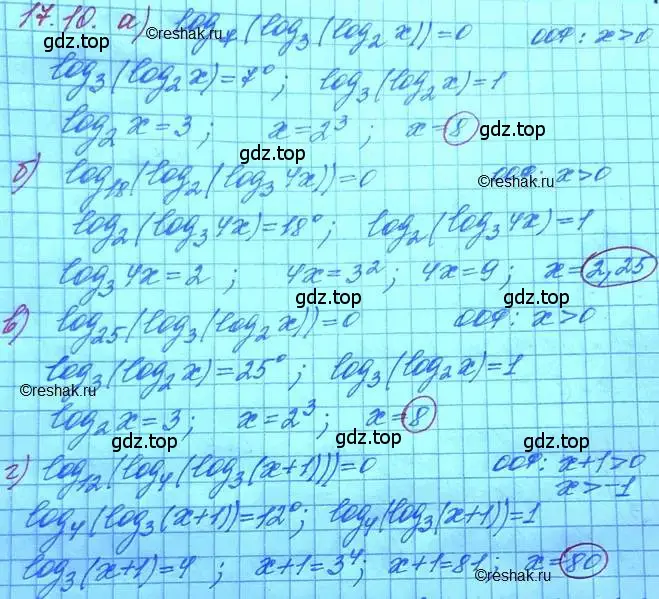 17.10. а) log₇(log₃(log₂x))=0 ООФ: x>0
log₃(log₂x)=7⁰; log₃(log₂x)=1
log₂x=3; x=2³; x=8
б) log₁₈(log₂(log₃4x))=0 ООФ: x>0
log₂(log₃4x)=18⁰; log₂(log₃4x)=1
log₃4x=2; 4x=3²; 4x=9; x=2,25
в) log₂₅(log₃(log₂x))=0 ООФ: x>0
log₃(log₂x)=25⁰; log₃(log₂x)=1
log₂x=3; x=2³; x=8
г) log₁₂(log₄(log₃(x+1)))=0 ООФ: x+1>0
x>-1
log₄(log₃(x+1))=12⁰; log₄(log₃(x+1))=1
log₃(x+1)=4; x+1=3⁴; x+1=81; x=80
©reshak.ru
gdz.top
gdz.top
gdz.top
gdz.top
©reshak.ru
gdz.top
gdz.top
©reshak.ru
gdz.top
gdz.top
©reshak.ru
gdz.top
gdz.top
©reshak.ru
gdz.top
gdz.top
©reshak.ru